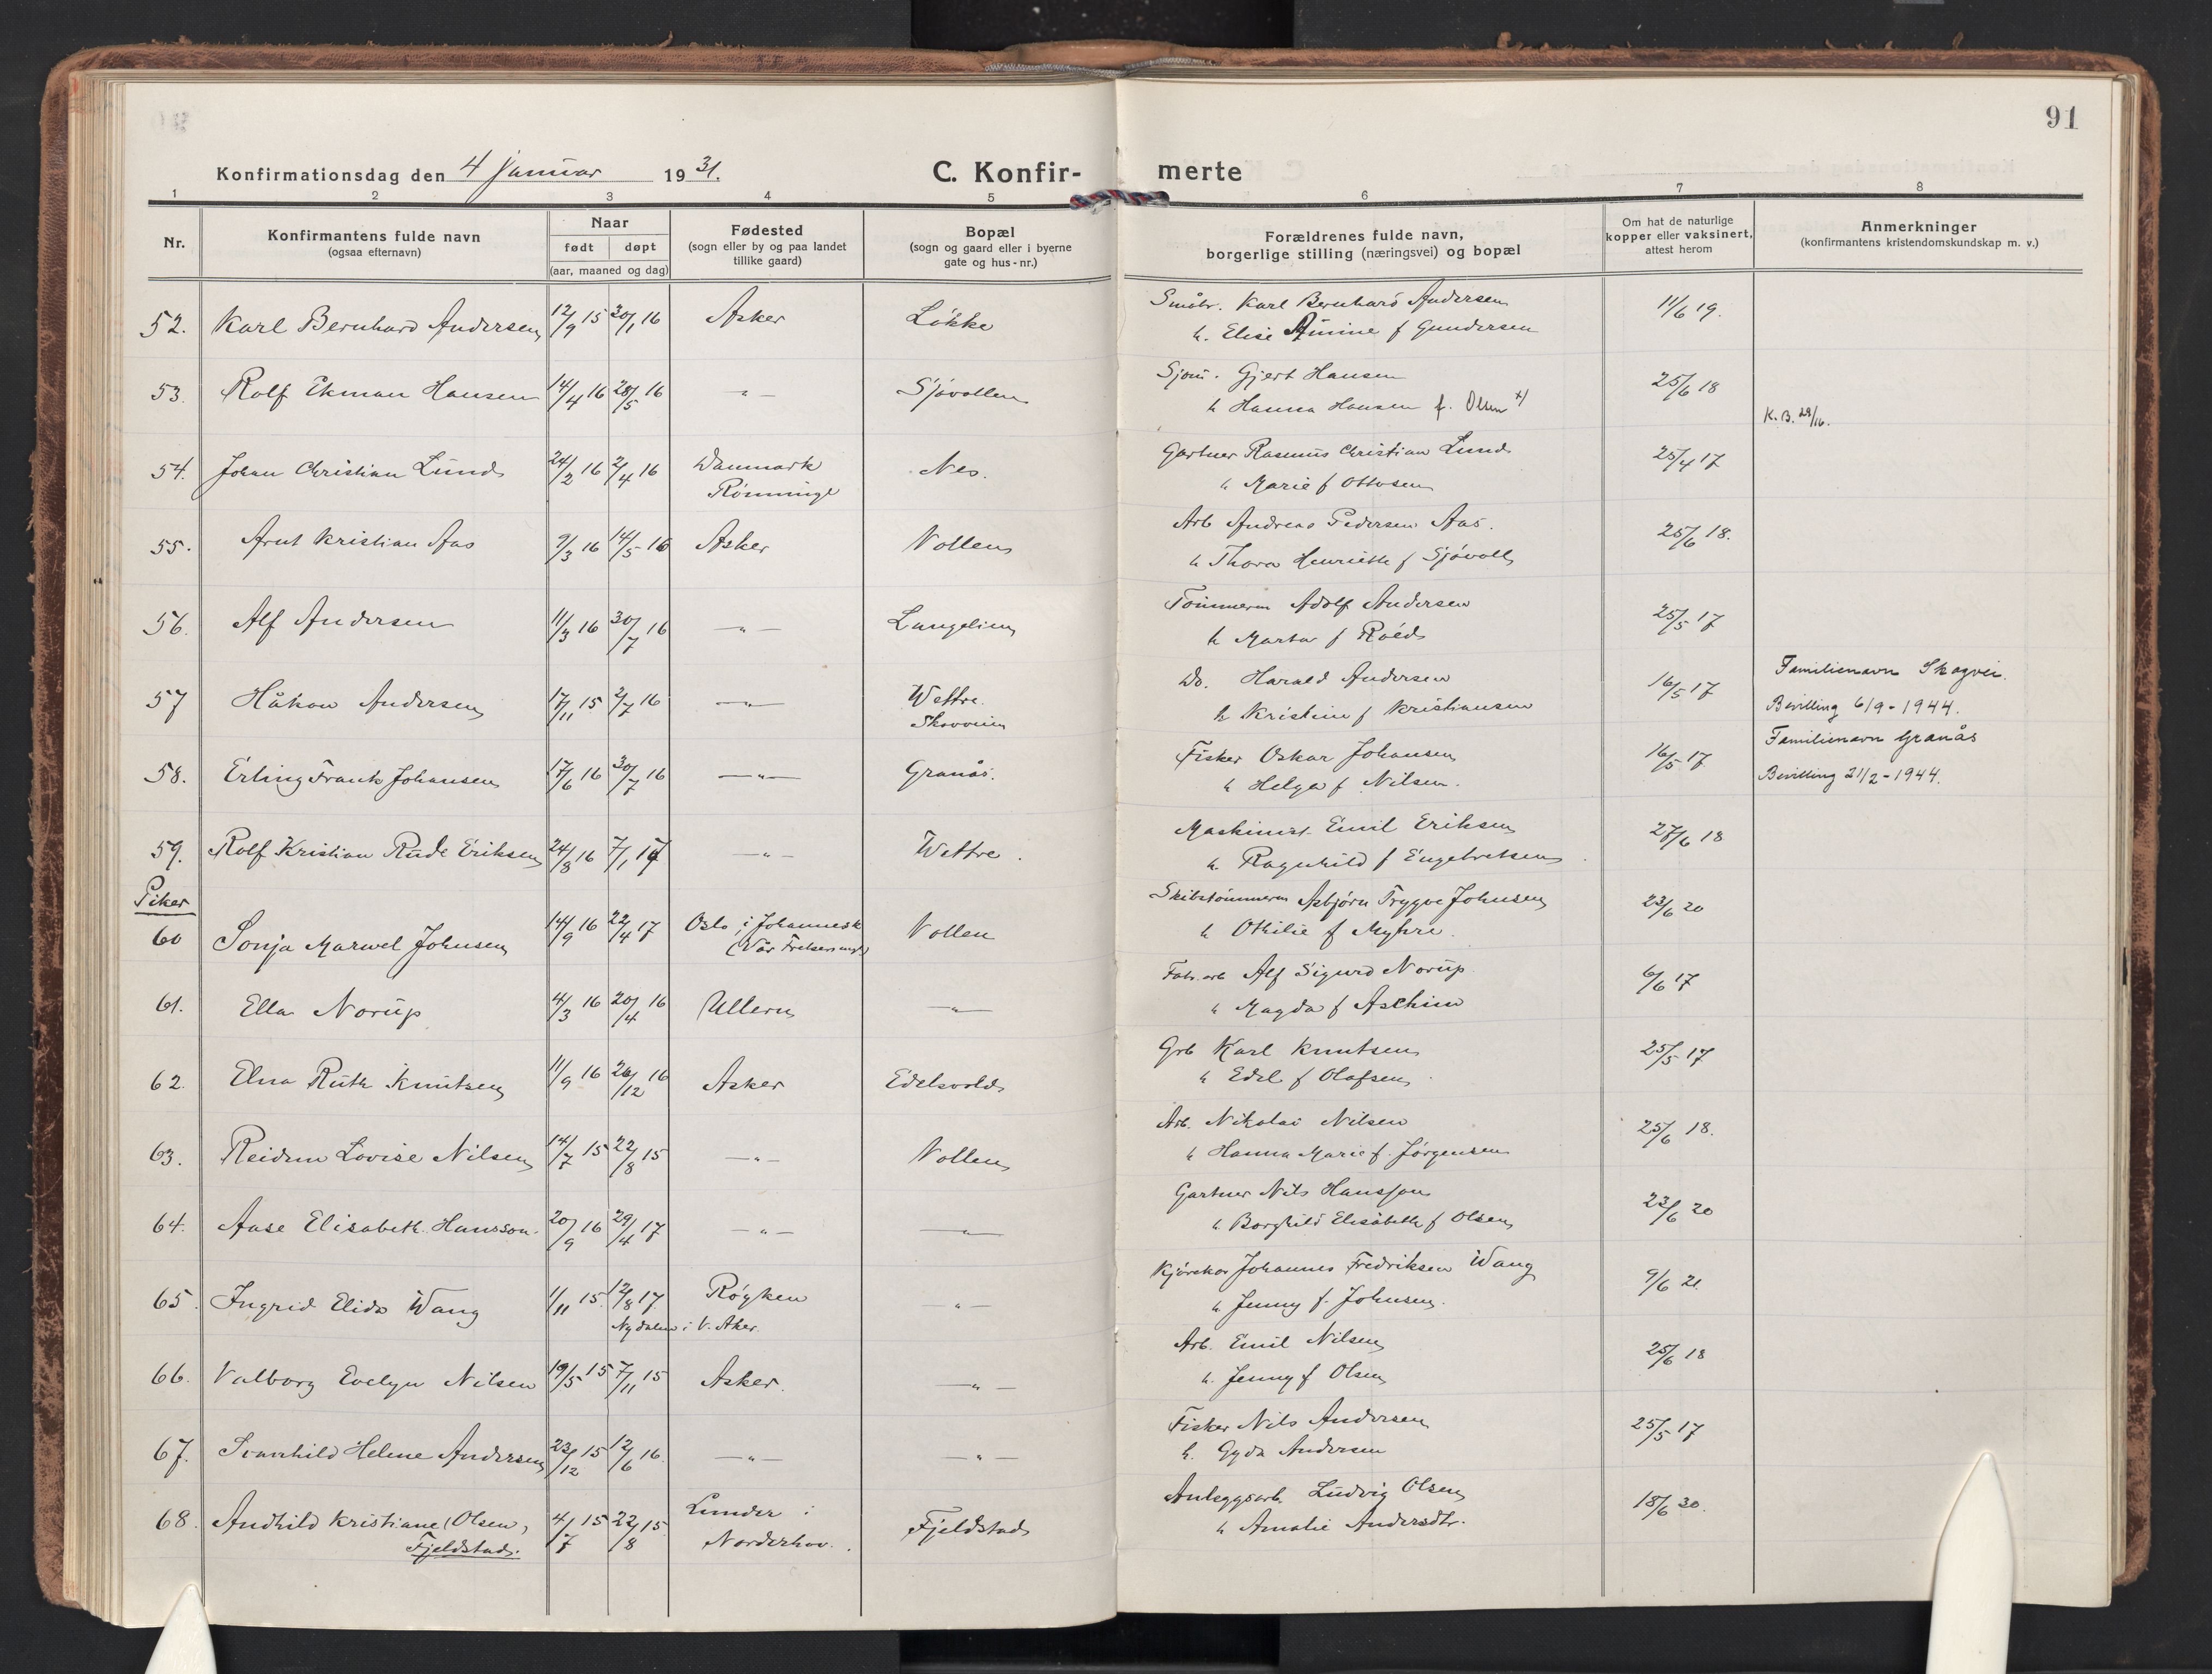 91
Konfirmationsdag den 4 Januar 1931.
C. Konfir-merte
1 2 3 4 5 6 7 8
Nr.
Konfirmantens fulde navn
(ogsaa efternavn)
Naar
født døpt
(aar, maaned og dag)
Fødested
(sogn eller by og paa landet
tillike gaard)
Bopæl
(sogn og gaard eller i byerne
gate og hus-nr.)
Forældrenes fulde navn,
borgerlige stilling (næringsvei) og bopæl
Om hat de naturlige
kopper eller vaksinert,
attest herom
Anmerkninger
(konfirmantens kristendomskundskap m. v.)
52. Karl Bernhard Andersen 12/9 15 30/1 16 Asker Løkke Småbr. Karl Bernhard Andersen 11/6 19.
h. Elise Amine f Gundersen
53. Rolf Ekman Hansen 14/4 16 28/5 16 -"- Sjøvollen Sjøm. Gjert Hansen 25/6 18
h Hanna Hansen f. Olsen x) K.B. 29/16.
54. Johan Christian Lund 24/2 16 2/4 16 Danmark Nes. Gartner Rasmus Christian Lund 25/4 17
Rønninge h Marie f Ottosen
55. Arnt Kristian Aas 9/3 16 14/5 16 Asker Vollen Arb Andreas Pedersen Aas. 25/6 18.
h Thora Henriette f Sjøvoll
56. Alf Andersen 11/3 16 30/7 16 -"- Langelim Tømmerm Adolf Andersen 25/5 17
h Marta f Røed
57 Håkon Andersen 17/11 15 2/7 16 -"- Wettre. Do. Harald Andersen 16/5 17 Familienavn Skogvei.
Skovveien h Kristine f Kristiansen Bevilling 6/9-1944.
58. Erling Frank Johansen 17/6 16 30/7 16 -"- Granås. Fisker Oskar Johansen 16/5 17 Familienavn Granås
h Helga f Nilsen. Bevilling 21/2-1944.
59. Rolf Kristian Rude Eriksen 24/8 16 7/1 17 -"- Wettre. Maskinist. Emil Eriksen 27/6 18
h. Ragnhild f Engebretsen
Piker
60 Sonja Marwel Johnsen 14/9 16 22/4 17 Oslo, i Johannesk Vollen Skibstømmerm Asbjørn Trygve Johnsen 23/6 20
(Vår Frelsers mgh) h Othilie f Myhre.
61. Ella Norup 4/3 16 20/4 16 Ullern -"- Fabr. arb Alf Sigurd Norup 6/6 17
h Magda f Aschim
62. Elna Ruth Knutsen 11/9 16 26/12 16 Asker Edelsvold Grb Karl Knutsen 25/5 17
h Edel f Olafsen.
63. Reidun Lovise Nilsen 14/7 15 22/8 15 -"- Vollen Arb. Nikolai Nilsen 25/6 18.
h Hanna Marie f. Jørgensen
64. Aase Elisabeth Hansson. 20/9 16 29/4 17 -"- -"- Gartner Nils Hansson 23/6 20
h. Borghild Elisabeth f Olsen
65. Ingrid Elida Wang 1/11 15. 12/8 17 Røyken -"- Kjørekar Johannes Fredriksen Wang 9/6 21.
Nydalen i V. Aker. h. Jenny f. Johnsen.
66. Valborg Evelyn Nilsen 19/5 15 7/11 15 Asker. -"- Arb. Emil Nilsen 25/6 18
h. Jenny f Olsen
67. Svanhild Helene Andersen 23/12 15 12/6 16. -"- -"- Fisker Nils Andersen 25/5 17
h. Gyda Andersen
68. Andhild Kristiane (Olsen) 4/7 15 22/8 15. Lunder i Fjeldstad Anleggsarb. Ludvig Olsen 18/6 30.
Fjeldstad. Norderhov. h Amalie Andersdtr.